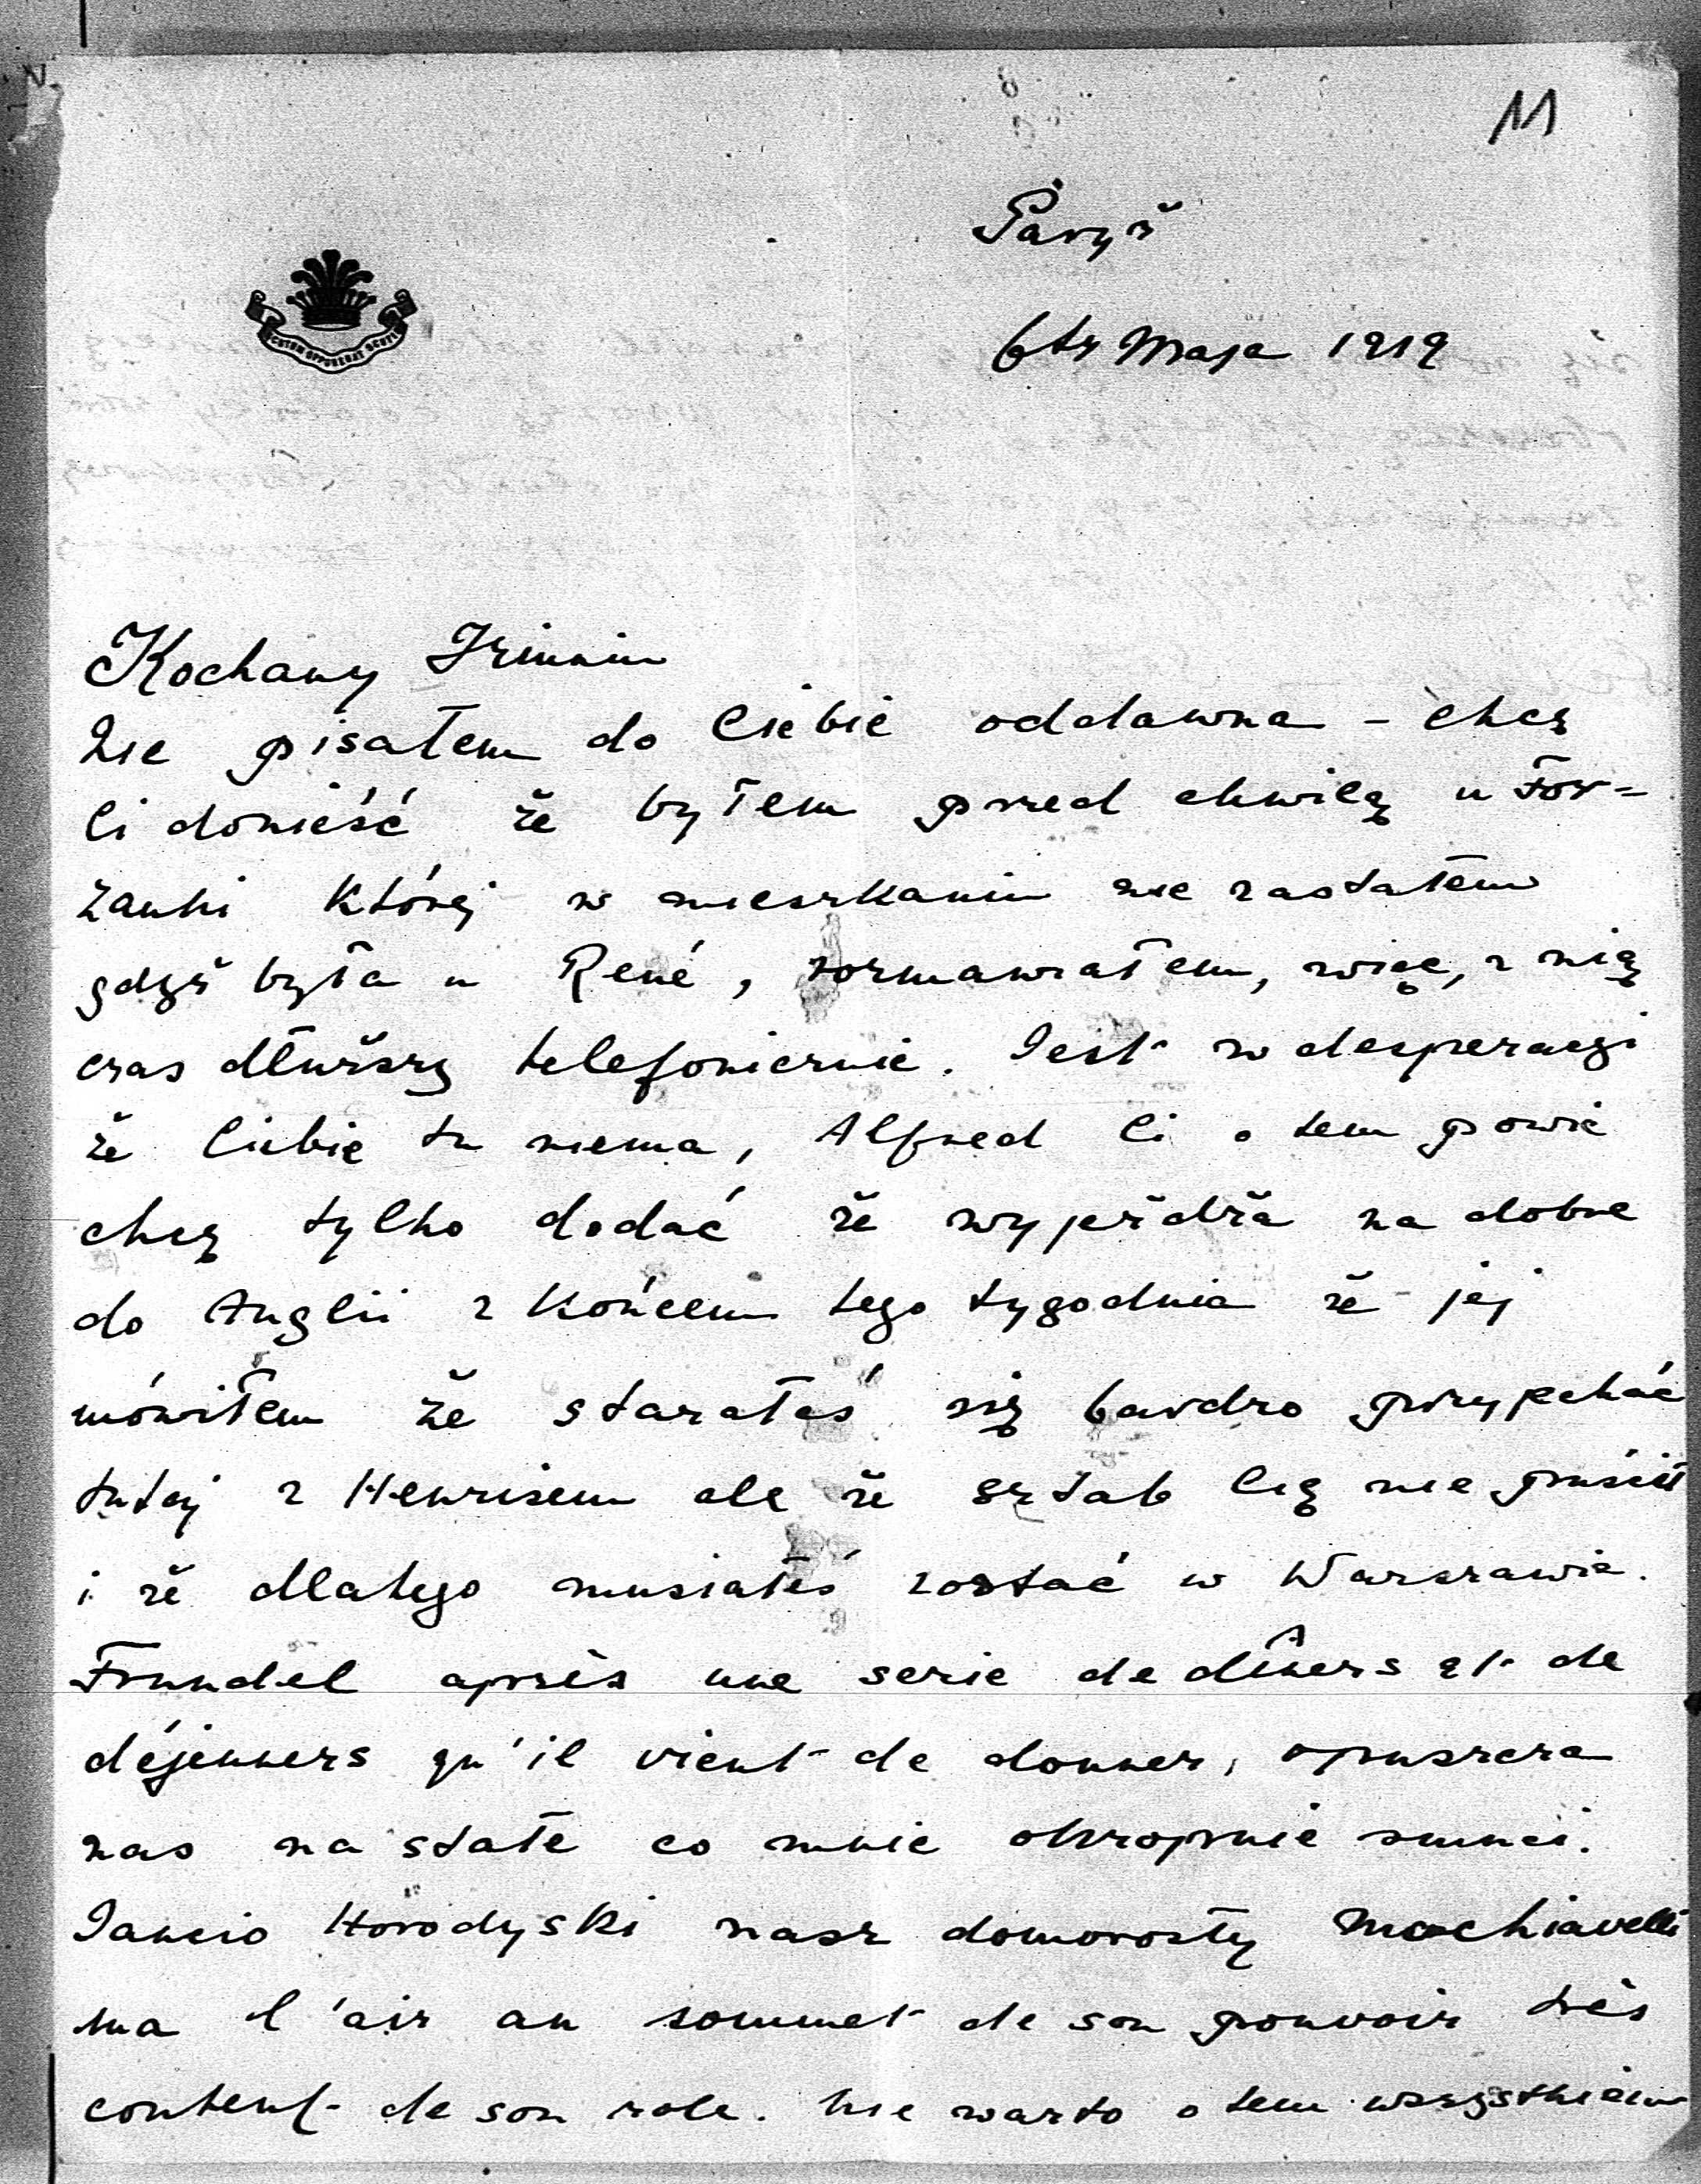 11
Paryż
6ty Maja 1919
SCUTUM OPPONEBAT SCUTIS
Kochany
Nie pisałem do Ciebie oddawna - chcę
Ci donieść że byłem przed chwilą u For=
zanki której w mieszkaniu nie zastałem
gdyż była u René, rozmawiałem, więc, z nią
czas dłuższy telefonicznie. Jest w desperacyi
że Ciebie tu niema, Alfred Ci o tem powie
chcę tylko dodać że wyjeżdża na dobre
do Anglii z końcem tego tygodnia że jej
mówiłem że starałeś się bardzo przyjechać
tutaj z Henrisem ale że sztab Cię nie puścił
i że dlatego musiałeś zostać w Warszawie.
après une serie de dîners et de
déjeuners qu'il vient de donner, opuszcza
nas na stałe co mnie okropnie smuci.
Jancio Horodyski nasz domorosły Machiavelli
ma l'air au sommet de son pouvoir très
content de son role. Nie warto o tem wszystkiem